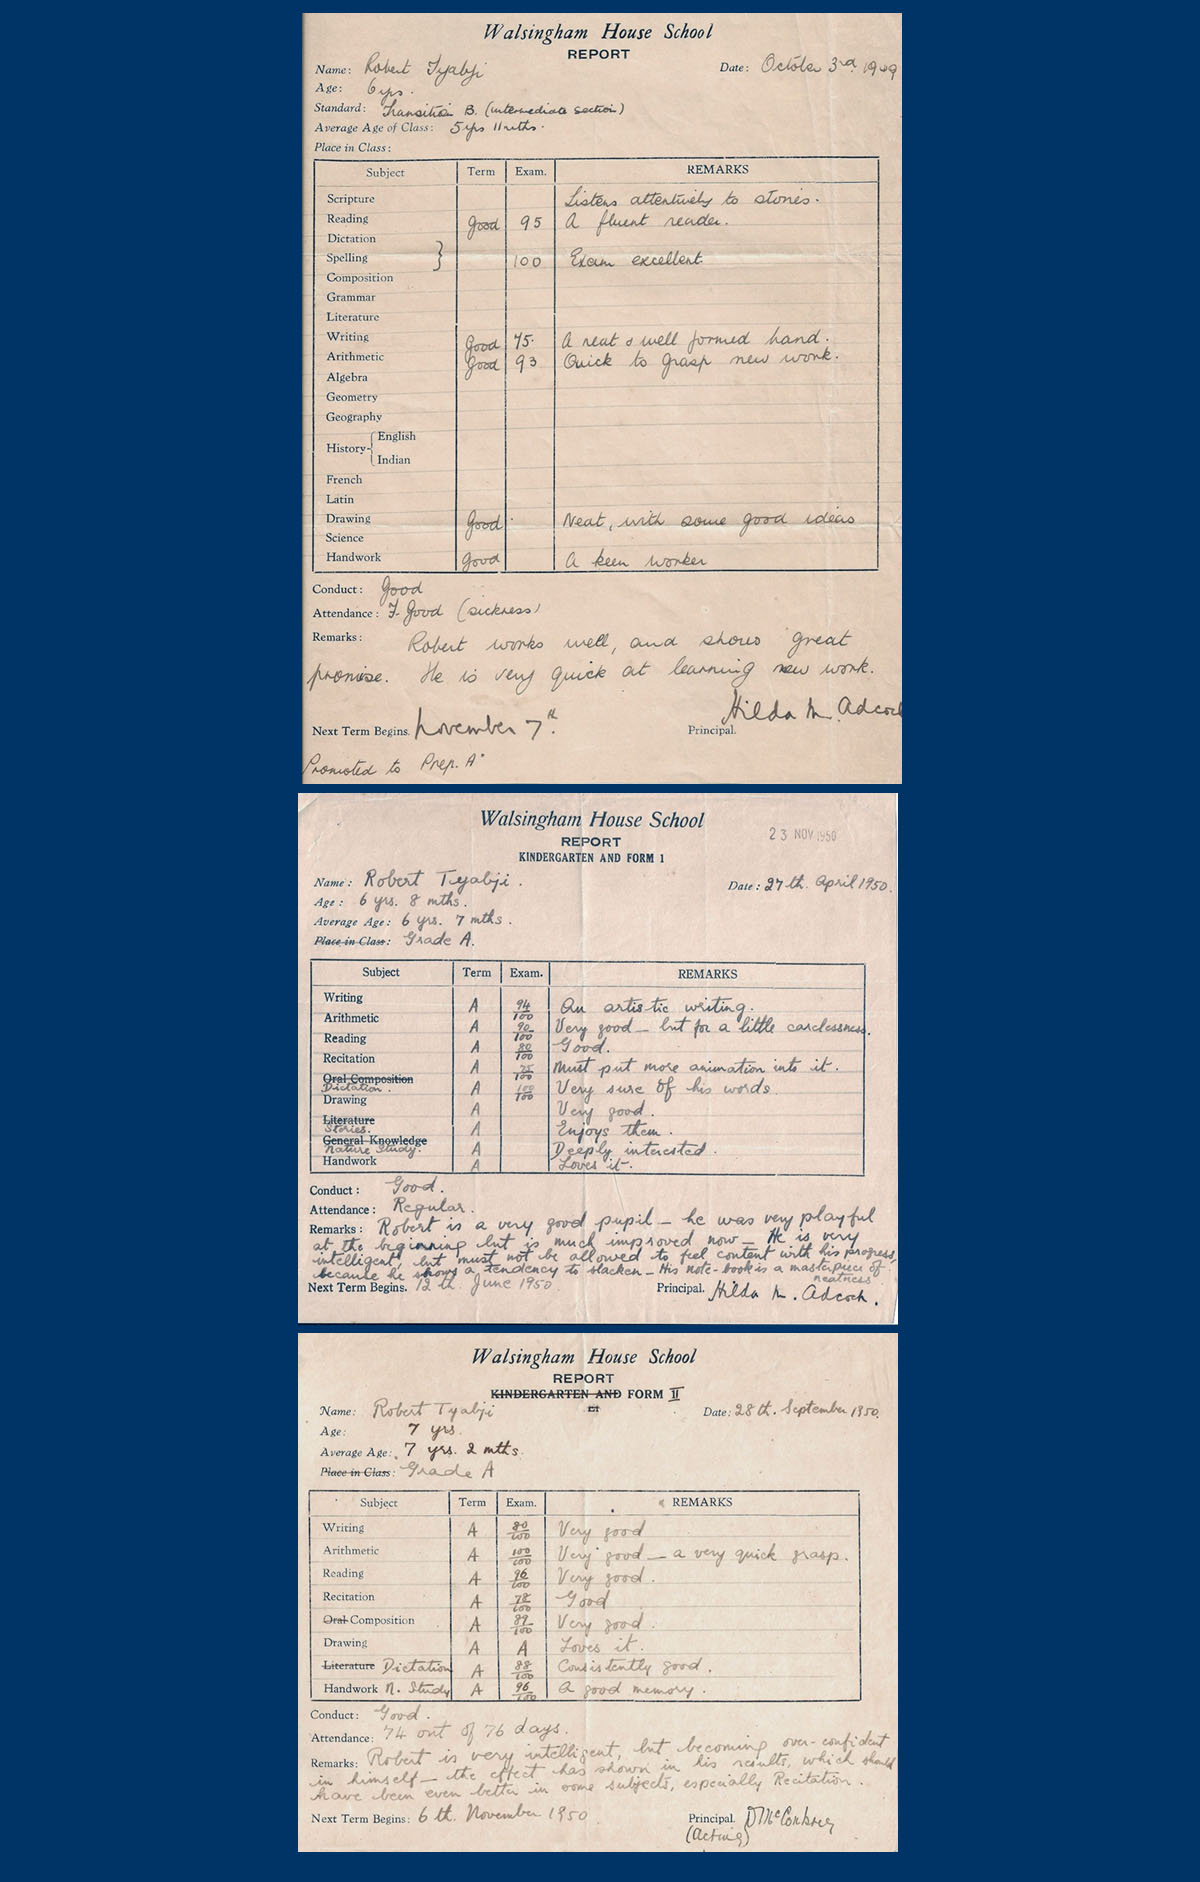 Walsingham House School
REPORT
Name: Robert Tyabji Date: October 3rd. 1949
Age: 6 yrs.
Standard: Transition B. (Intermediate Section)
Average Age of Class: 5 yrs 11 mths.
Place in Class:
Subject Term Exam. REMARKS
Scripture Listens attentively to stories.
Reading Good 95 A fluent reader.
Dictation
Spelling } 100 Exam excellent.
Composition
Grammar
Literature
Writing Good 75. A neat & well formed hand.
Arithmetic Good 93 Quick to grasp new work.
Algebra
Geometry
Geography
History- { English
Indian
French
Latin
Drawing Good Neat, with some good ideas
Science
Handwork Good A keen worker
Conduct: Good
Attendance: F. Good (sickness)
Remarks: Robert works well, and shows great
promise. He is very quick at learning new work.
Hilda M. Adcock
Next Term Begins. November 7th. Principal.
Promoted to Prep. A.
Walsingham House School
23 NOV 1950
REPORT
KINDERGARTEN AND FORM 1
Name: Robert Tyabji. Date: 27th. April 1950.
Age: 6 yrs. 8 mths.
Average Age: 6 yrs. 7 mths.
Place in Class: Grade A.
Subject Term Exam. REMARKS
Writing A 94/100 An artistic writing.
Arithmetic A 90/100 Very good - but for a little carelessness.
Reading A 80/100 Good.
Recitation A 75/100 Must put more animation into it.
Oral Composition
Dictation. A 100/100 Very sure of his words
Drawing A Very good.
Literature
Stories. A Enjoys them.
General Knowledge
Nature Study. A Deeply interested.
Handwork A Loves it.
Conduct: Good.
Attendance: Regular.
Remarks: Robert is a very good pupil - he was very playful
at the beginning but is much improved now - He is very
intelligent, but must not be allowed to feel content with his progress,
because he shows a tendency to slacken - His note-book is a masterpiece of
neatness.
Next Term Begins. 12th. June 1950. Principal. Hilda M. Adcock.
Walsingham House School
REPORT
KINDERGARTEN AND FORM II
Name: Robert Tyabji Date: 28th. September 1950.
Age: 7 yrs.
Average Age: 7 yrs. 2 mths.
Place in Class: Grade A
Subject Term Exam. REMARKS
Writing A 80/100 Very good
Arithmetic A 100/100 Very good - a very quick grasp.
Reading A 96/100 Very good.
Recitation A 78/100 Good
Oral Composition A 89/100 Very good.
Drawing A A Loves it.
Literature Dictation A 88/100 Consistently good.
Handwork N. Study A 96/100 A good memory.
Conduct: Good.
Attendance: 74 out of 76 days.
Remarks: Robert is very intelligent, but becoming over-confident
in himself - the effect has shown in his results, which should
have been even better in some subjects, especially Recitation.
Next Term Begins: 6th. November 1950 Principal. D McConkey
(Acting)